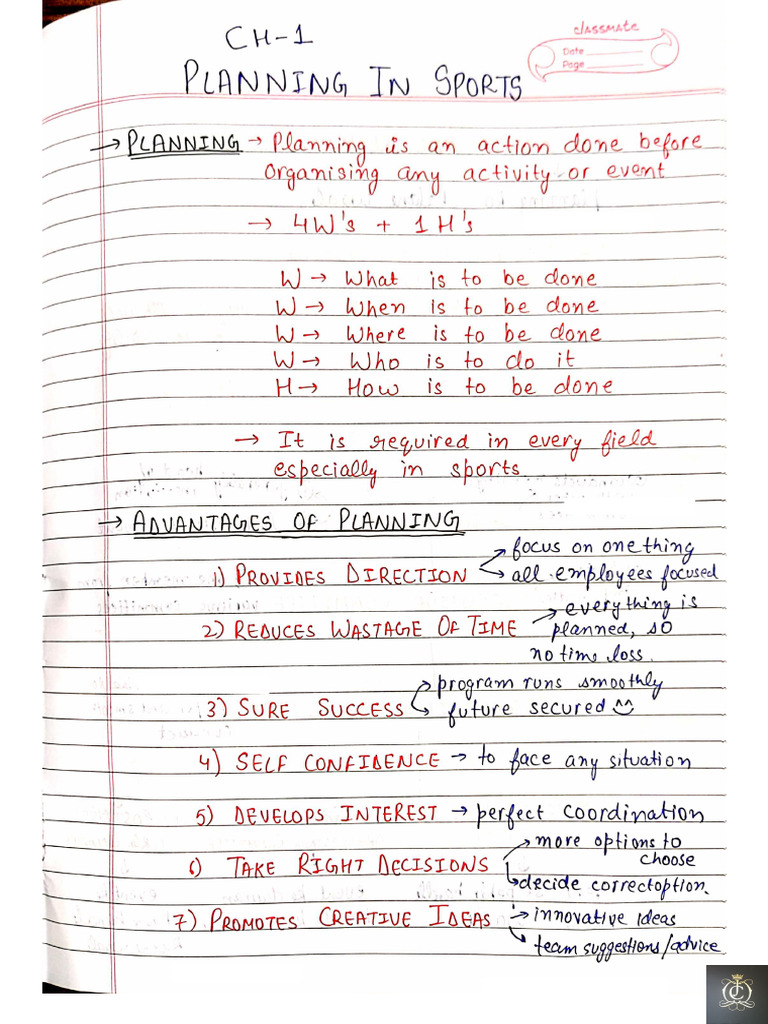 CH-1
classmate
Date
Page
PLANNING IN SPORTS
→ PLANNING → Planning is an action done before
organising any activity or event
→ 4W's + 1H's
W → What is to be done
W → When is to be done
W → Where is to be done
W → Who is to do it
H → How is to be done
→ It is required in every field
especially in sports
→ ADVANTAGES OF PLANNING
1) PROVIDES DIRECTION → focus on one thing
→ all employees focused
2) REDUCES WASTAGE OF TIME → everything is
planned, so
no time loss.
3) SURE SUCCESS → program runs smoothly
→ future secured
4) SELF CONFIDENCE → to face any situation
5) DEVELOPS INTEREST → perfect coordination
6) TAKE RIGHT DECISIONS → more options to
choose
→ decide correct option.
7) PROMOTES CREATIVE IDEAS → innovative ideas
→ team suggestions/advice